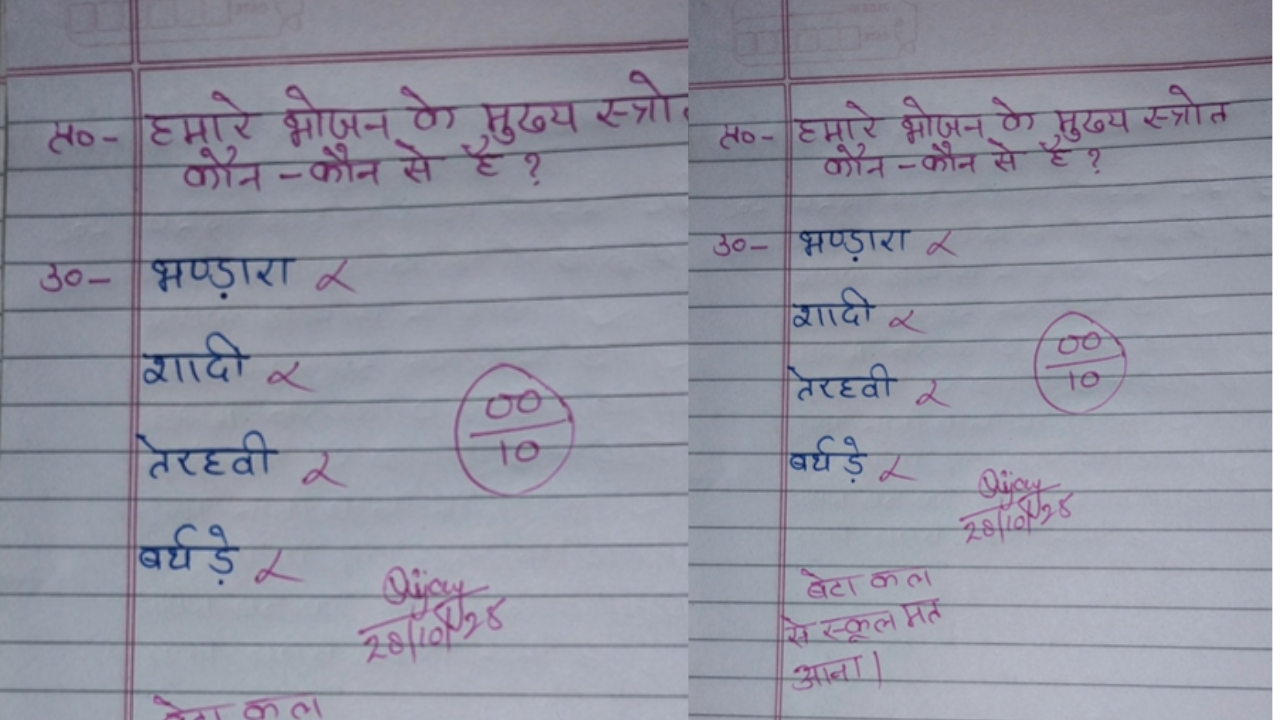 स०- हमारे भोजन के मुख्य स्त्रोत
कौन - कौन से है ?
उ०- भण्ड़ारा ×
शादी ×
तेरहवी ×
बर्थ ड़े ×
00
10
Vijay
28/10/
बेटा कल
स०- हमारे भोजन के मुख्य स्त्रोत
कौन - कौन से है ?
उ०- भण्ड़ारा ×
शादी ×
तेरहवी ×
बर्थ ड़े ×
00
10
Vijay
28/10/
बेटा कल
से स्कूल मत
आना ।